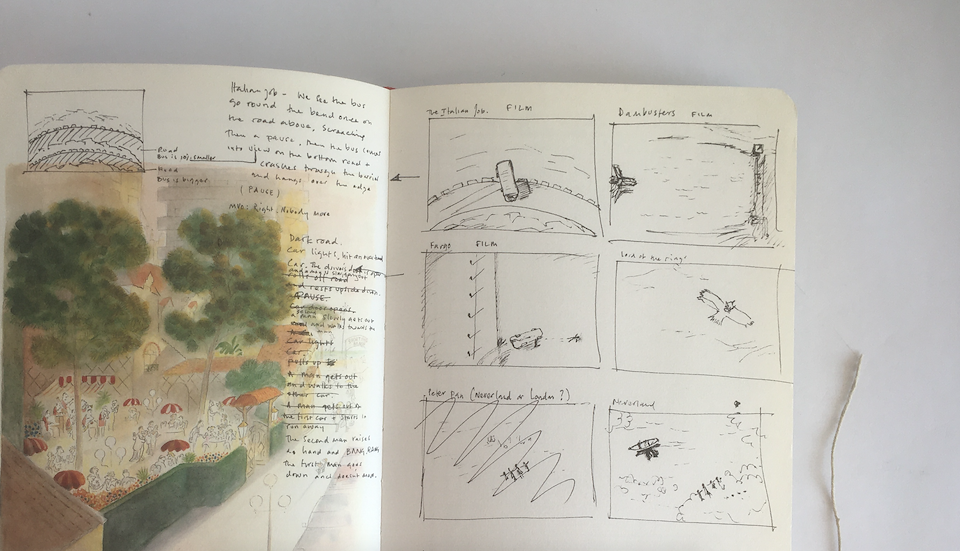 Italian Job - We see the bus
go round the bend once on
the road above, screeching
then a pause, then the bus comes
into view on the bottom road &
crashes through the barrier
and hangs over the edge
(PAUSE)
Right, Nobody move
Road
Bus is 10% smaller
Road
Bus is bigger
Dark road.
Car lights, hit an overturned
Car. The drivers door is open
rolls off road
and rests upside down.
PAUSE.
Car door opens,
a man slowly gets out
and walks towards
Car lights
Car.
pulls up
A man gets out
and walks to the
other car.
A man gets out of
the first car & starts to
run away
The second man raises
a hand and BANG, BANG
The first man goes
down and doesn't move.
The Italian Job. FILM
Dambusters FILM
Fargo FILM
Lord of the rings
Peter Pan (Neverland or London?)
Neverland